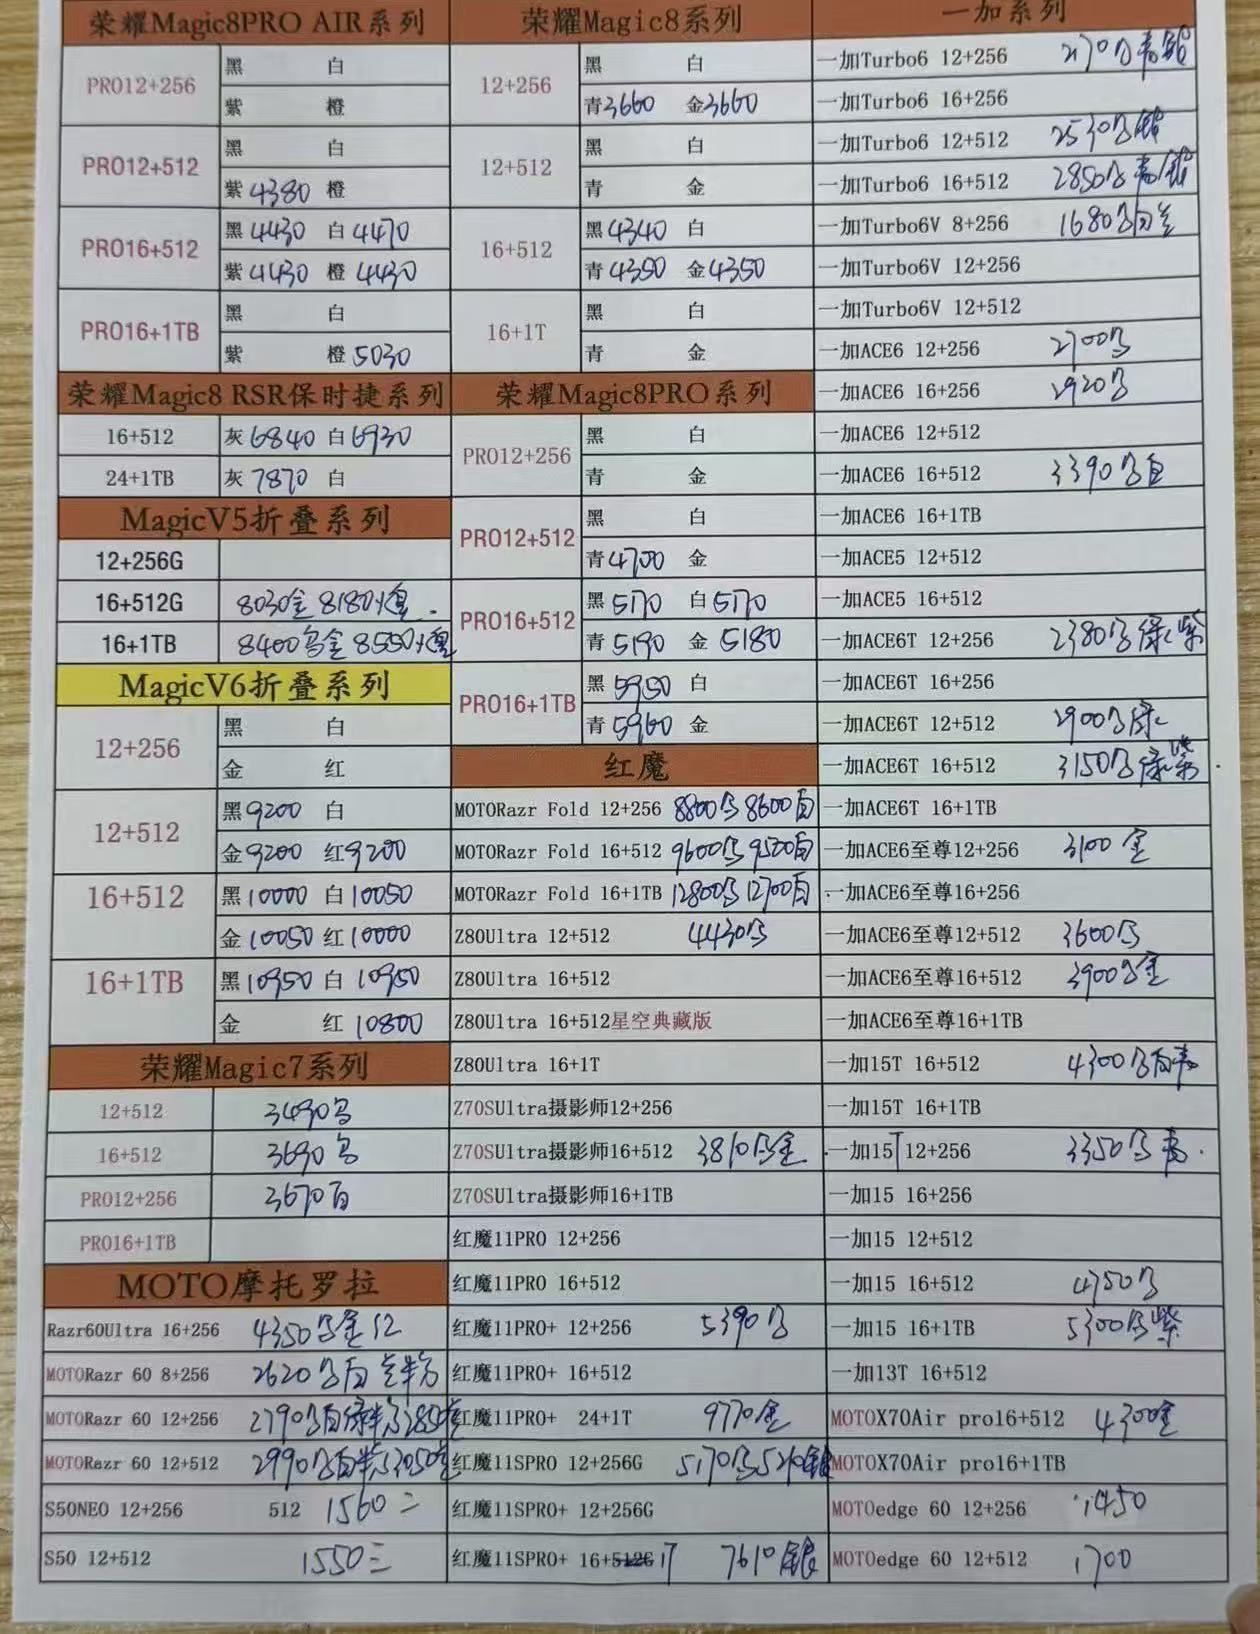 荣耀Magic8PRO AIR系列
PRO12+256
黑 白
紫 橙
PRO12+512
黑 白
紫4380 橙
PRO16+512
黑4430 白4470
紫4430 橙4430
PRO16+1TB
黑 白
紫 橙5030
荣耀Magic8 RSR保时捷系列
16+512 灰6840 白6930
24+1TB 灰7870 白
MagicV5折叠系列
12+256G
16+512G 8030金 8180
16+1TB 8400乌金 8550
MagicV6折叠系列
12+256
黑 白
金 红
12+512
黑9200 白
金9200 红9200
16+512
黑10000 白10050
金10050 红10000
16+1TB
黑10950 白10950
金 红10800
荣耀Magic7系列
12+512 3490乌
16+512 3690乌
PRO12+256 3670白
PRO16+1TB
MOTO摩托罗拉
Razr60Ultra 16+256 4350乌金红
MOTORazr 60 8+256 2620乌白
MOTORazr 60 12+256 2790乌白绿
MOTORazr 60 12+512 2990乌白
S50NEO 12+256 512 1560三
S50 12+512 1550三
荣耀Magic8系列
12+256
黑 白
青3660 金3660
12+512
黑 白
青 金
16+512
黑4340 白
青4350 金4350
16+1T
黑 白
青 金
荣耀Magic8PRO系列
PRO12+256
黑 白
青 金
PRO12+512
黑 白
青4700 金
PRO16+512
黑5170 白5170
青5190 金5180
PRO16+1TB
黑5950 白
青5960 金
红魔
MOTORazr Fold 12+256 8800乌 8600白
MOTORazr Fold 16+512 9600乌 9500白
MOTORazr Fold 16+1TB 12800乌 12700白
Z80Ultra 12+512 4430乌
Z80Ultra 16+512
Z80Ultra 16+512星空典藏版
Z80Ultra 16+1T
Z70SUltra摄影师12+256
Z70SUltra摄影师16+512 3810乌金
Z70SUltra摄影师16+1TB
红魔11PRO 12+256
红魔11PRO 16+512
红魔11PRO+ 12+256 5390乌
红魔11PRO+ 16+512
红魔11PRO+ 24+1T 9770金
红魔11SPRO 12+256G 5170乌5210银
红魔11SPRO+ 12+256G
红魔11SPRO+ 16+1T 7610银
一加系列
一加Turbo6 12+256 2170乌青银
一加Turbo6 16+256
一加Turbo6 12+512 2530乌银
一加Turbo6 16+512 2850乌青银
一加Turbo6V 8+256 1680乌白
一加Turbo6V 12+256
一加Turbo6V 12+512
一加ACE6 12+256 2700乌
一加ACE6 16+256 2920乌
一加ACE6 12+512
一加ACE6 16+512 3390乌白
一加ACE6 16+1TB
一加ACE5 12+512
一加ACE5 16+512
一加ACE6T 12+256 2380乌绿紫
一加ACE6T 16+256
一加ACE6T 12+512 2900乌绿
一加ACE6T 16+512 3150乌绿紫
一加ACE6T 16+1TB
一加ACE6至尊12+256 3100金
一加ACE6至尊16+256
一加ACE6至尊12+512 3600乌
一加ACE6至尊16+512 3900乌金
一加ACE6至尊16+1TB
一加15T 16+512 4300乌白青
一加15T 16+1TB
一加15T 12+256 3350乌青
一加15 16+256
一加15 12+512
一加15 16+512 4750乌
一加15 16+1TB 5300乌紫
一加13T 16+512
MOTOX70Air pro16+512 4300金
MOTOX70Air pro16+1TB
MOTOedge 60 12+256 1450
MOTOedge 60 12+512 1700